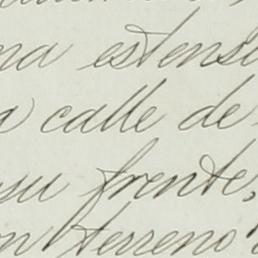 na estensi
a calle de
su frente,
on terreno